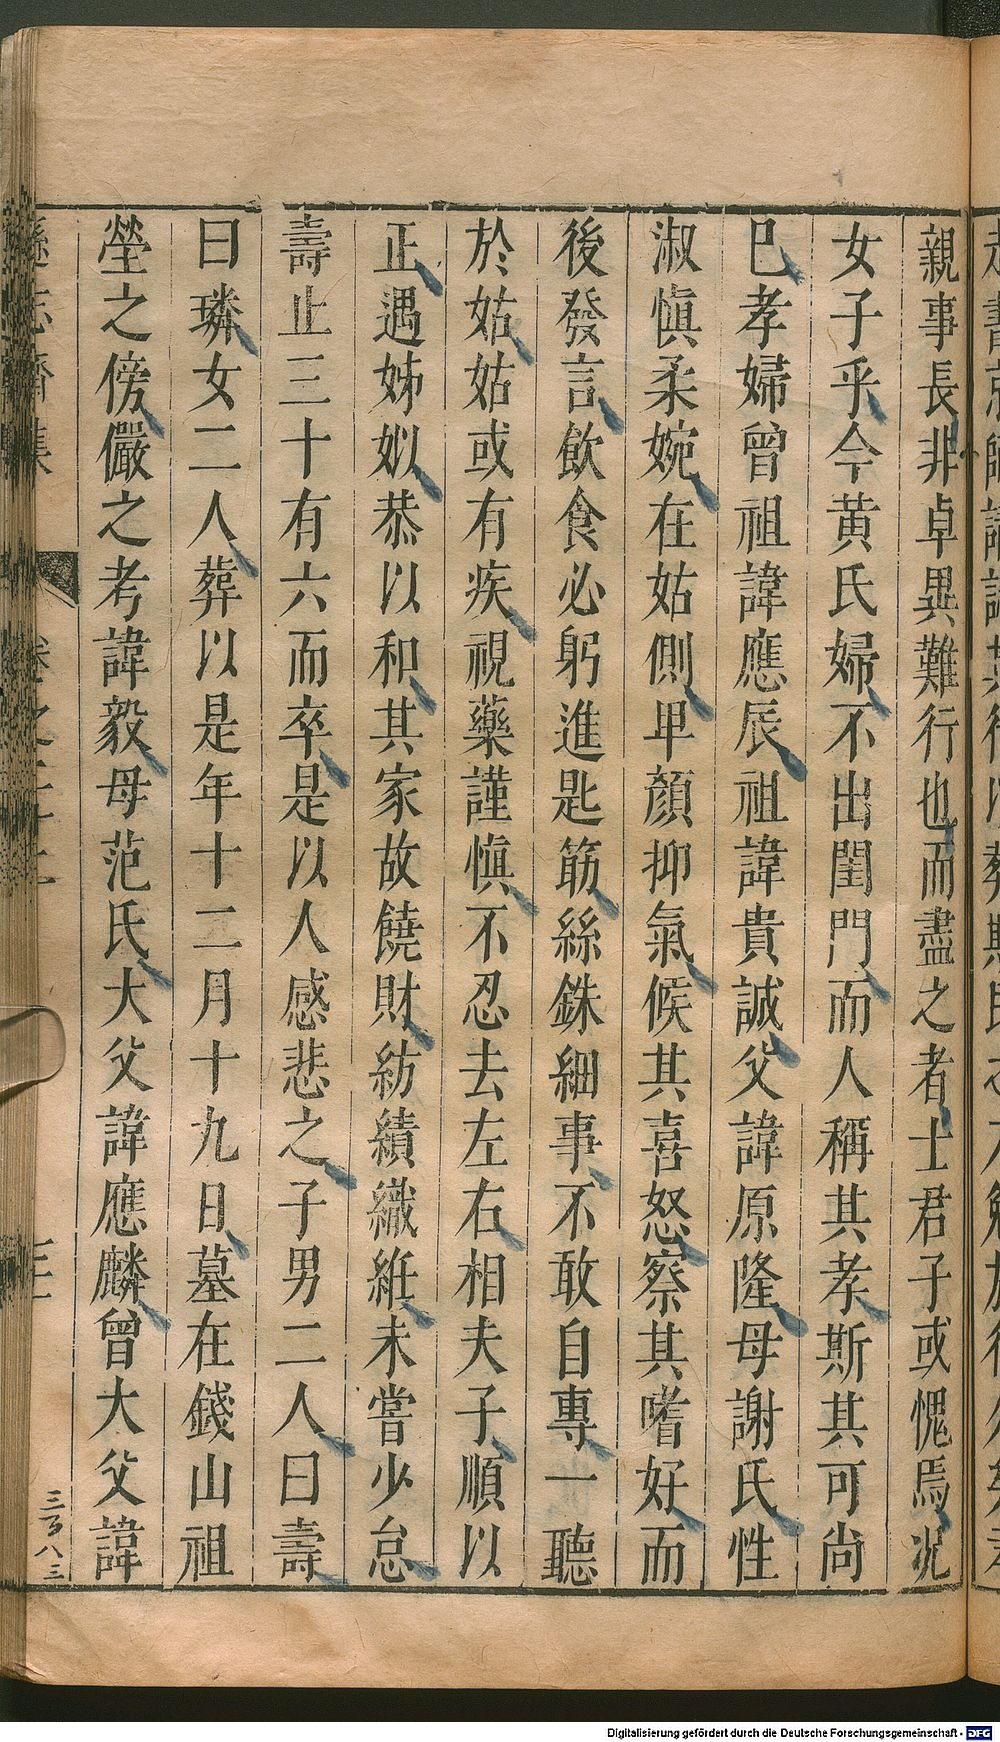 親事長非卓異難行也而盡之者士君子或愧焉况
女子乎今黃氏婦不出閨門而人稱其孝斯其可尚
巳孝婦曾祖諱應辰祖諱貴誠父諱原隆母謝氏性
淑愼柔婉在姑側卑顏抑氣候其喜怒察其嗜好而
後發言飲食必躬進匙筯絲銖細事不敢自專一聽
於姑姑或有疾視藥謹愼不忍去左右相夫子順以
正遇姊姒恭以和其家故饒財紡績織紝未嘗少怠
壽止三十有六而卒是以人感悲之子男二人曰壽
曰璘女二人葬以是年十二月十九日墓在錢山祖
塋之傍儼之考諱毅母范氏大父諱應麟曾大父諱
遜志齋集
卷之二十二
三百八三
Digitalisierung gefördert durch die Deutsche Forschungsgemeinschaft - DFG